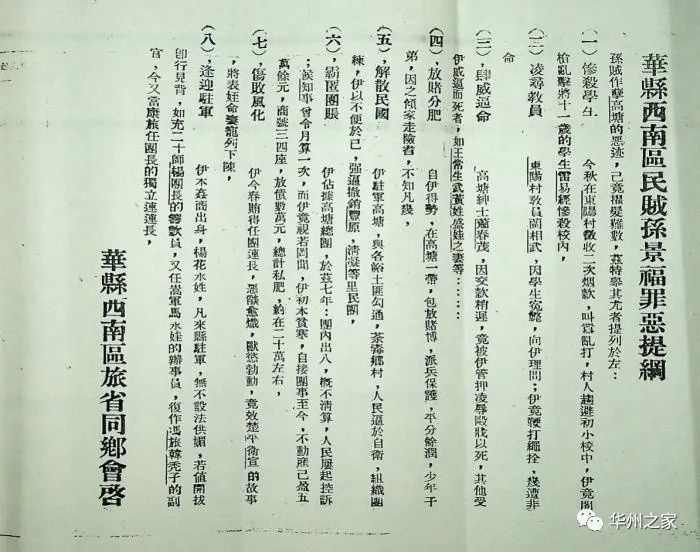 華縣西南區民賊孫景福罪惡提綱
孫賊作孽高塘的恶迹，已竟擢髮難數，茲特舉其尤者提列於左：
（一）慘殺學生　今秋在東陽村徵收二次烟款，叫囂亂打，村人趨避初小校中，伊竟開
槍亂擊將十一歲的學生雷易經慘殺校內，
（二）凌辱教員　東陽村敎員藺相武，因學生冤斃，向伊理問；伊竟鞭打繩拴，幾遭非
命
（三）肆威逼命　高塘紳士蕭春茂，因交款稍遲，竟被伊管押凌辱毆戕以死，其他受
伊威逼而死者，如王常生武黃姓盛娃之妻等⋯⋯⋯
（四）放賭分肥　自伊得勢，在高塘一帶，包放賭博，派兵保護，平分餘潤，少年子
弟，因之傾家走險者，不知凡幾，
（五）解散民國　伊駐軍高塘，與各峪土匪勾通，荼毒鄉村，人民逼於自衛，組織團
練，伊以不便於已，强逼撤銷豐原，清凝等里民團，
（六）霸匿團賬　伊佔據高塘總團，於茲七年：團內出入，概不清算，人民屢起控訴
；候知事曾令月算一次，而伊竟視若罔聞，伊初本貧寒，自接團事至今，不動產已盈五
萬餘元，商號三四座，放債數萬元，總計私肥，約在二十萬左右，
（七）傷敗風化　伊今春賄得任團連長，恶燄愈熾，獸慾勃動，竟效楚平衛宣的故事
，將表姪命妻寵列下陳，
（八）逢迎駐軍　伊本姦商出身，楊花水姓，凡來縣駐軍，無不設法供媚，若値開拔
卽行見背，如充二十師楊團長的籌款員，又任嵩軍馬水娃的辦事員，復作馮旅韓禿子的副
官，今又當康旅任團長的獨立連連長，
華縣西南區旅省同鄉會啓
华州之家